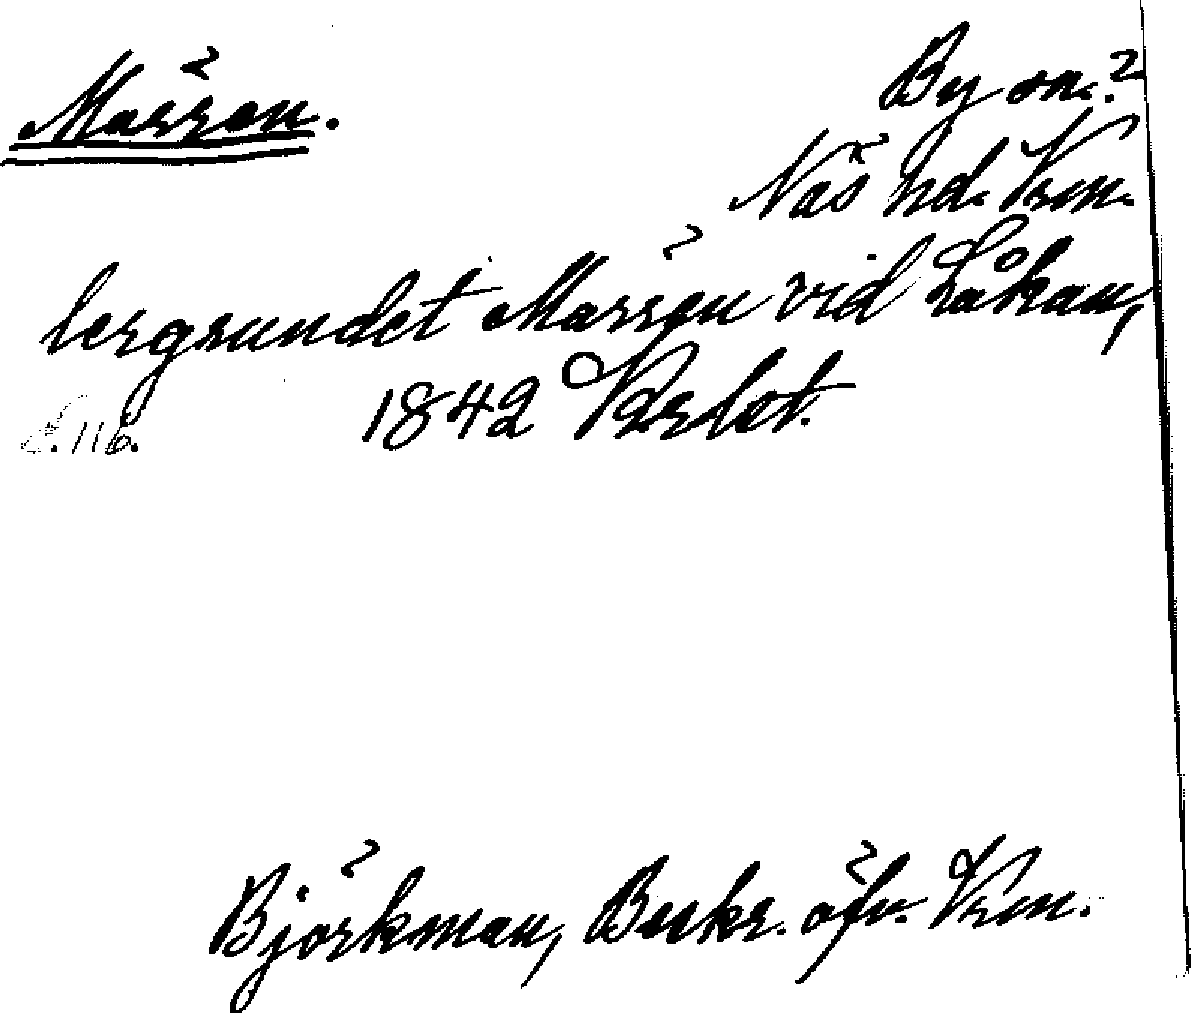 Marrën.
By sn.?
Näs hd. Vrm.
bergsundet Marrën vid Låkan,
1842 Karlot.
s. 116.
Björkman, Beskr. öfv. Vrm.